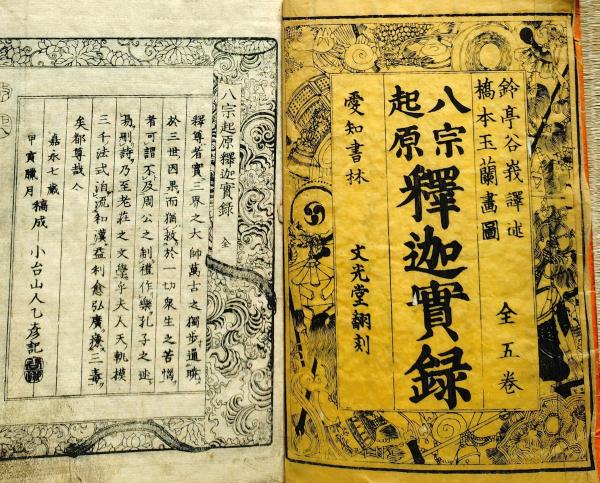 鈴亭谷峩譯述
橋本玉蘭畫圖
全五卷
八宗
起原
釋迦實録
愛知書林
文光堂翻刻
八宗起原釋迦實録 全
釋尊者實三界之大師萬古之獨歩通暁
於三世因果而猶救於一切衆生之苦惱
者可謂不及周公之制禮作樂孔子之述
易刪詩乃至老莊之文學乎夫人天軌模
三千法式泊流和漢益利愈弘廣療三毒
矣都尊哉
嘉永七歳
甲寅臘月
稿成 小台山人乙彦記